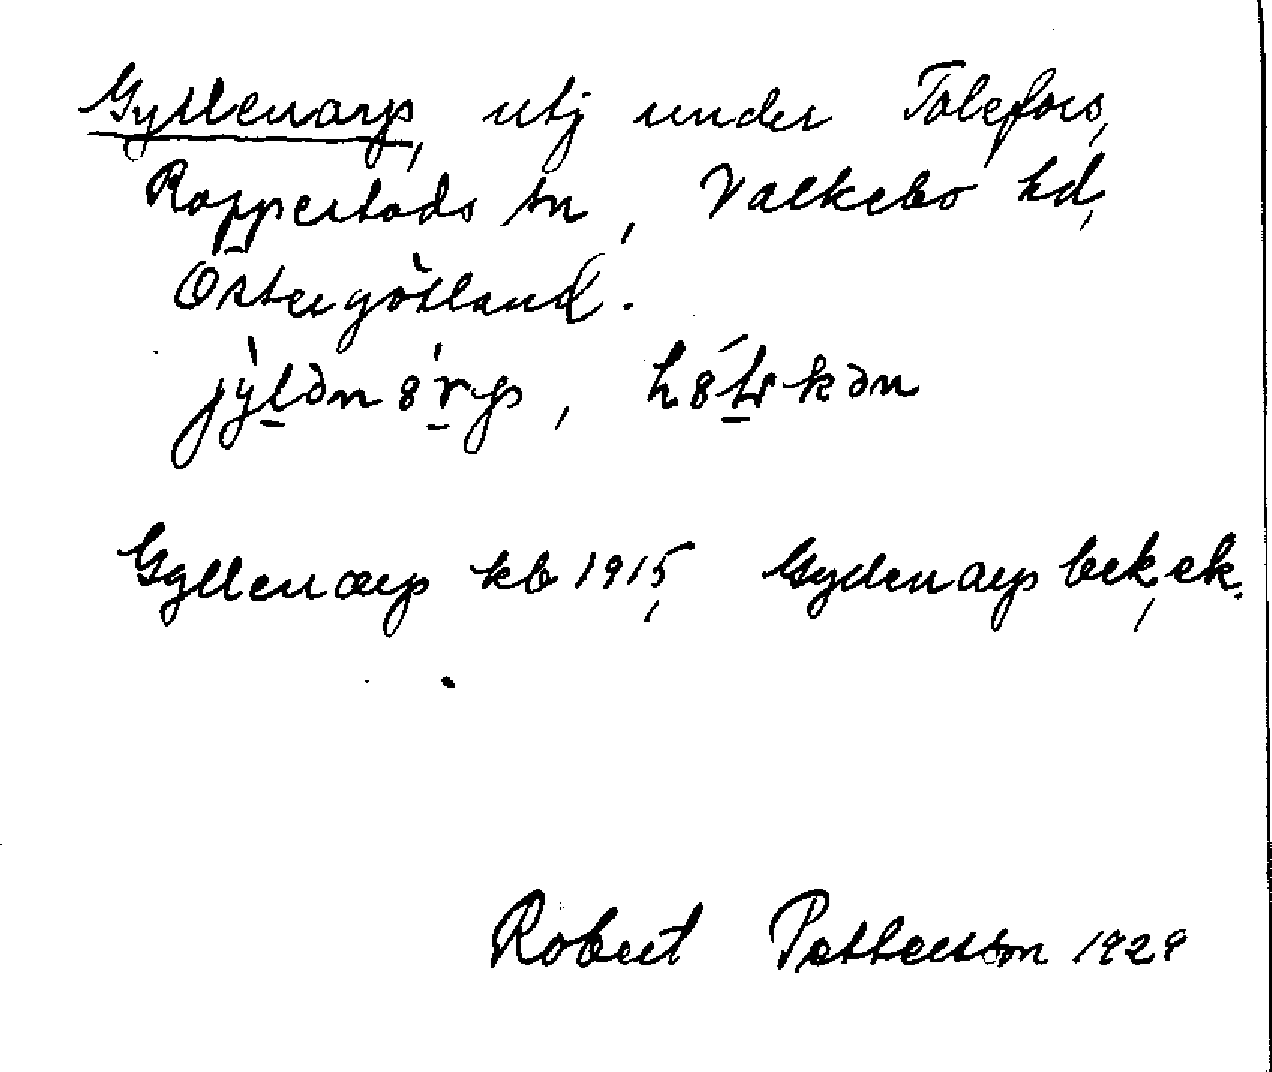 Gyllenarp, utj under Tolefors,
Rappestads sn, Valkebo hd,
Östergötland.
Gyllenarp kb 1915, Gyllenarp bek, ek.
Robert Petterson 1929